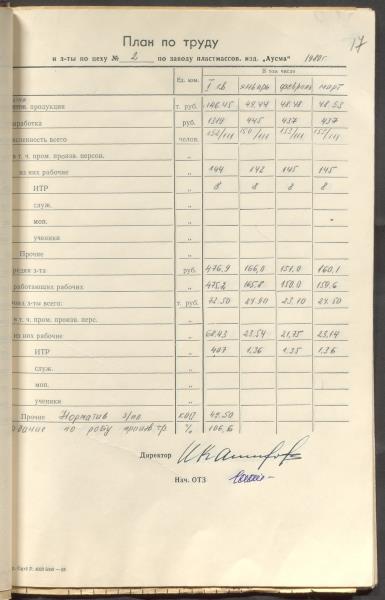 17
План по труду
и з-ты по цеху № 2 по заводу пластмасс. изд. „Аусма" 1980 г.
Ед. изм. В том числе
I кв январь февраль март
продукции т. руб. 146.45 49.44 48.48 48.53
работка руб. 1314 445 437 437
исленность всего челов.
в т. ч. пром. произв. персон. „
из них рабочие „ 144 142 145 145
ИТР „ 8 8 8 8
служ. „
моп. „
ученики „
Прочие „
редняя з-та руб. 476,9 166,0 151,0 160,1
работающих рабочих „ 475,2 165,8 150,0 159,6
з-ты всего: т. руб. 72.50 24.90 23.10 24.50
в т. ч. пром. произв. перс. „
из них рабочие „ 68.43 23.54 21,75 23,14
ИТР „ 4,07 1,36 1.35 1.36
служ. „
моп. „
ученики „
Прочие Норматив з/пл коп 49.50
по росту произв. тр. % 106,6
Директор
Нач. ОТЗ